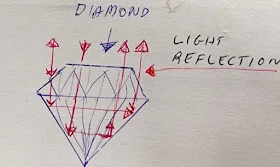 DIAMOND
LIGHT
REFLECTION